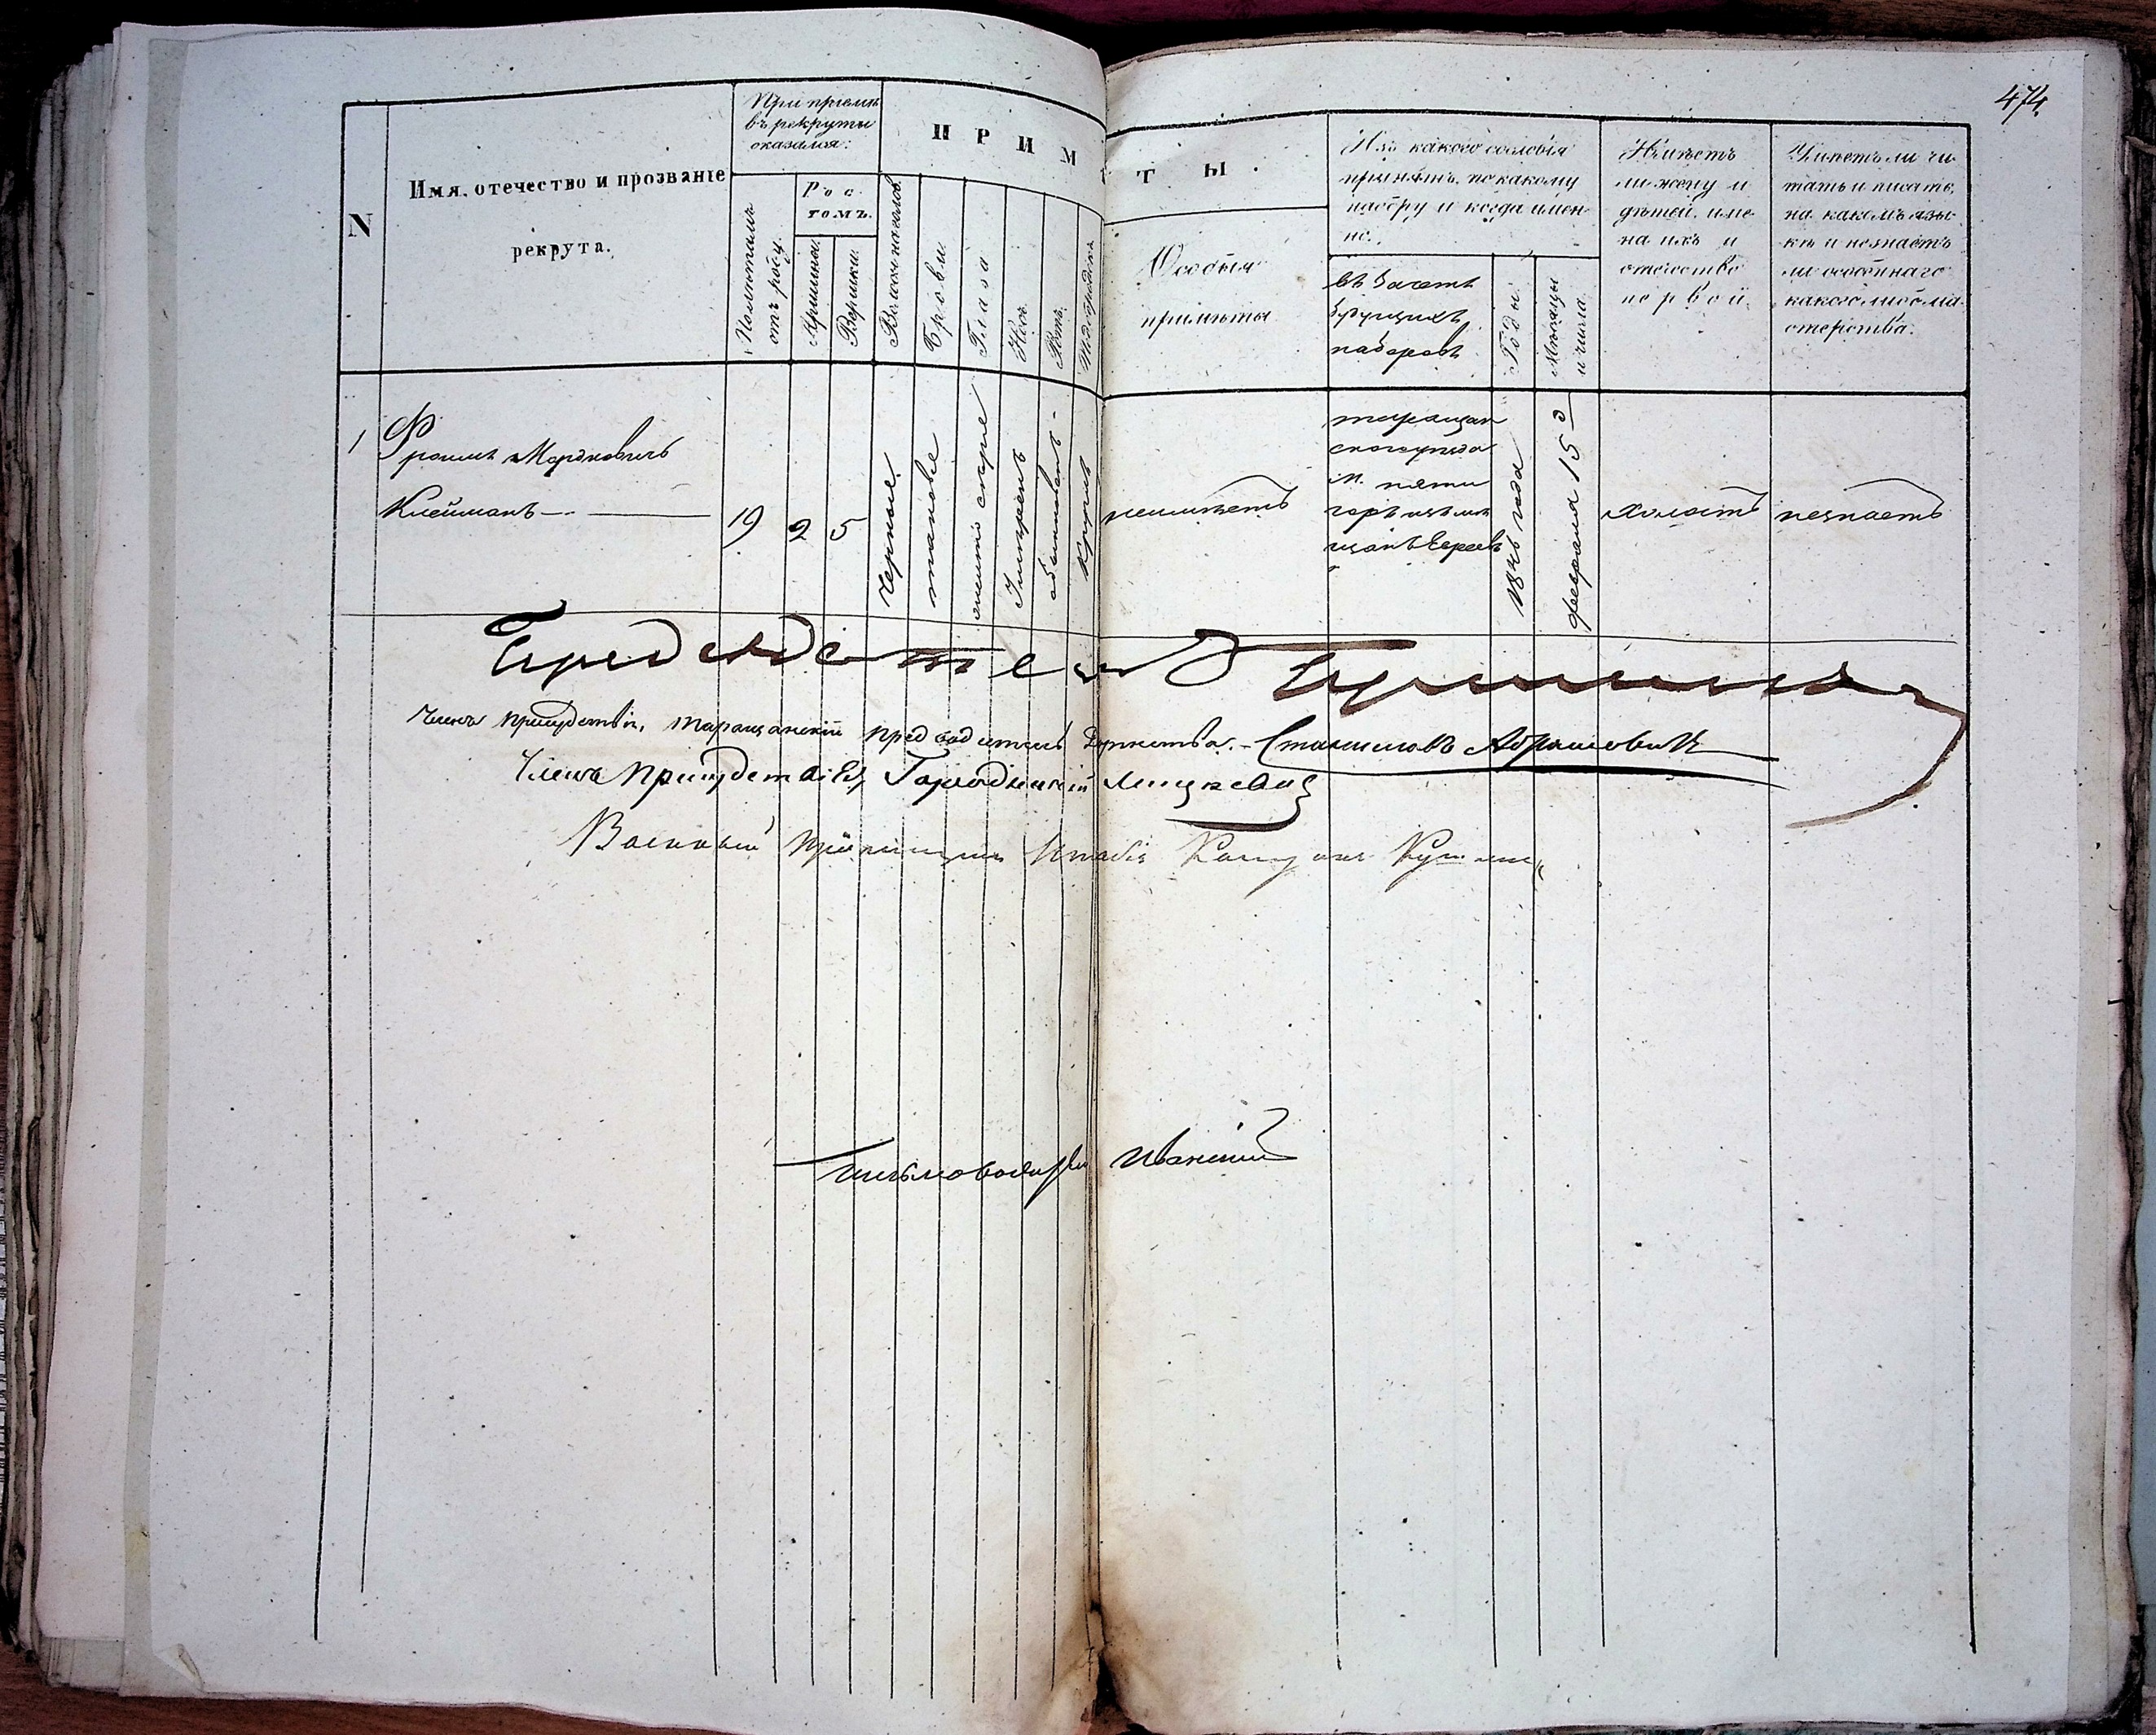 474
N
Имя, отечество и прозваніе
рекрута.
При приемѣ
въ рекруты
оказался:
Полнотамъ
отъ роду
Рос
томъ.
Аршины.
Вершки.
ПРИМ
ТЫ.
Волосы на головѣ
Брови.
Глаза
Носъ.
Ротъ.
Подбородокъ
Особыя
примѣты
Изъ какого сословія
принятъ, по какому
набору и когда имен-
но.
въ Зачетъ
будущихъ
наборовъ
Годы.
Мѣсяцы
и числа.
Имѣетъ
ли жену и
дѣтей, име
на ихъ и
отечество
первой.
Умѣетъ ли чи-
тать и писать,
на какомъ язы-
кѣ и незнаетъ
ли особеннаго
какого либо ма-
стерства.
1
Мордковичъ
Клейманъ
19
2
5
черные
таковые
сѣрые
Умѣренъ
обыкновенъ
Круглъ
неимѣетъ
таращан
скаго уѣзда
м. пяти
горъ изъ мѣ
щанъ Евреевъ
1846 года
февраля 15
холостъ
незнаетъ
Предсѣдатель
Членъ присудствія, таращанскій предводитель Дворянства. Станиславъ Абрамовичъ
Членъ Присудствія, Городничій
Военный Пріемщикъ Штабсъ Капитанъ
письмоводитель